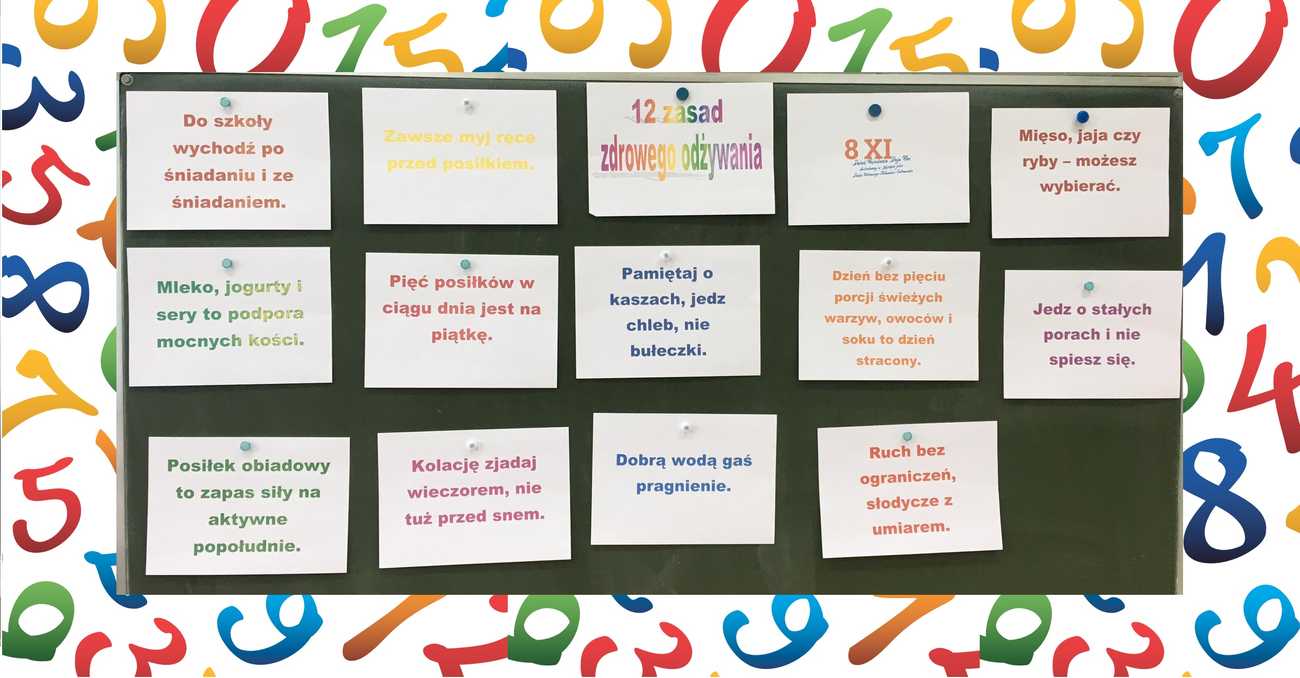 Do szkoły
wychodź po
śniadaniu i ze
śniadaniem.
Zawsze myj ręce
przed posiłkiem.
12 zasad
zdrowego odżywania
8 XI
Mięso, jaja czy
ryby – możesz
wybierać.
Mleko, jogurty i
sery to podpora
mocnych kości.
Pięć posiłków w
ciągu dnia jest na
piątkę.
Pamiętaj o
kaszach, jedz
chleb, nie
bułeczki.
Dzień bez pięciu
porcji świeżych
warzyw, owoców i
soku to dzień
stracony.
Jedz o stałych
porach i nie
spiesz się.
Posiłek obiadowy
to zapas siły na
aktywne
popołudnie.
Kolację zjadaj
wieczorem, nie
tuż przed snem.
Dobrą wodą gaś
pragnienie.
Ruch bez
ograniczeń,
słodycze z
umiarem.